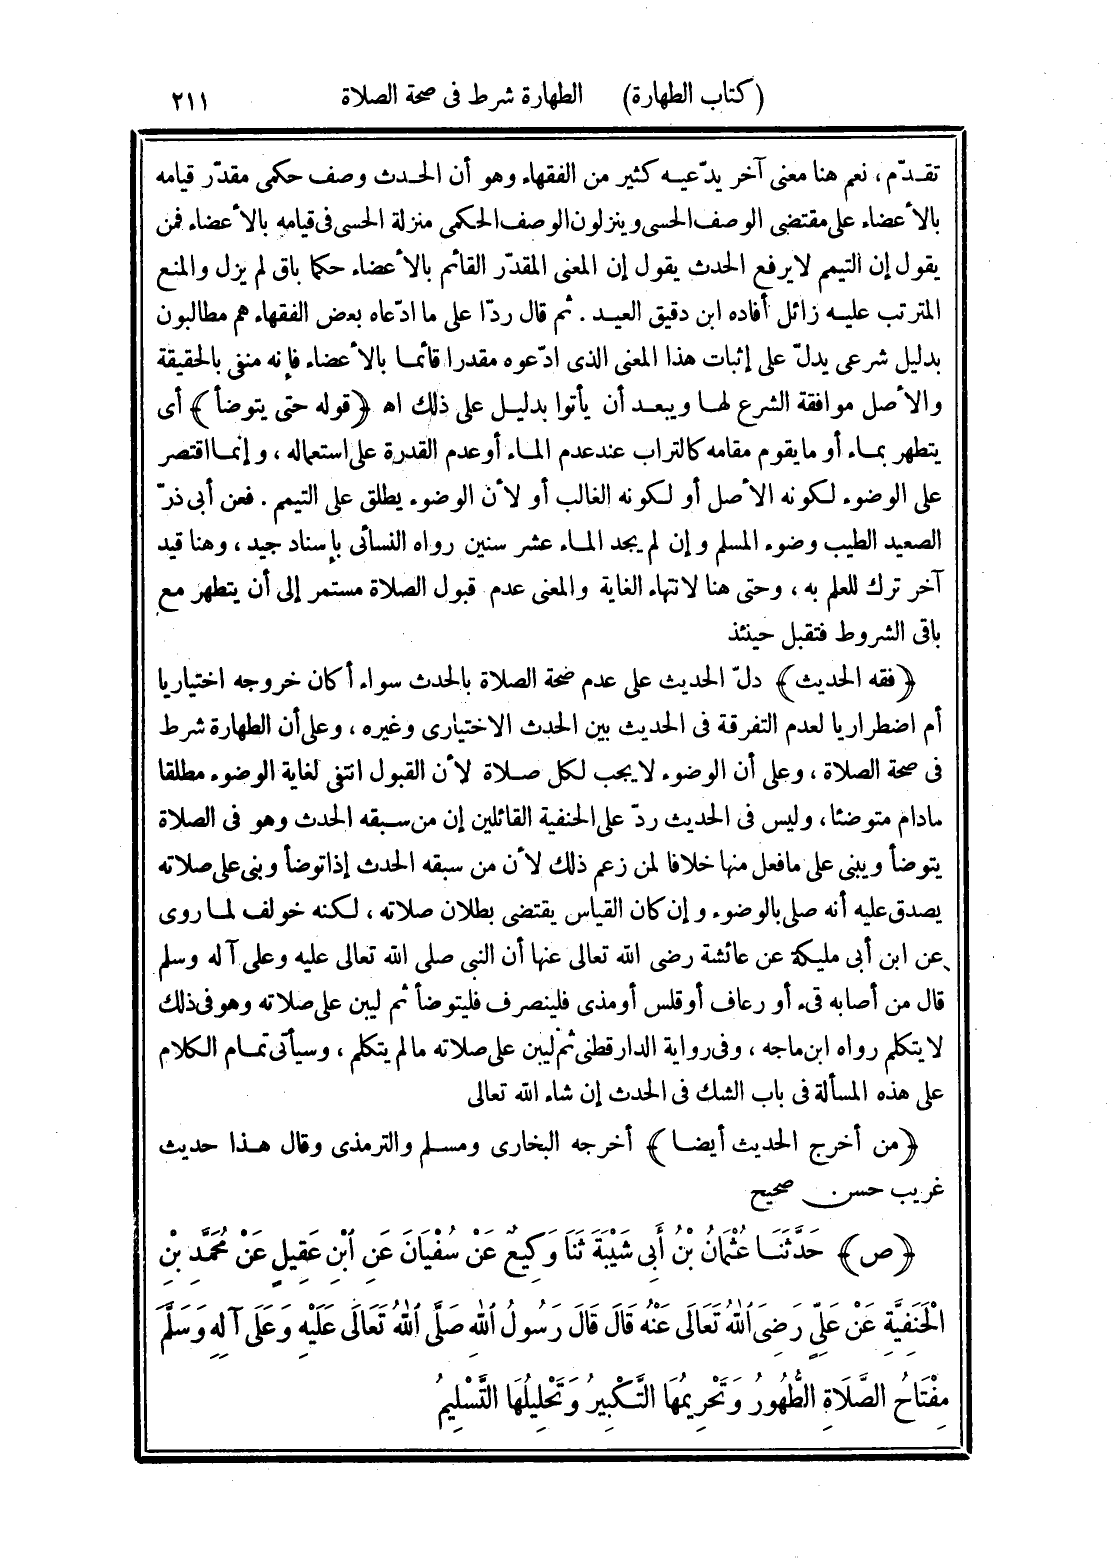 (كتاب الطهارة) الطهارة شرط فى صحة الصلاة ٢١١
تقدّم ، نعم هنا معنى آخر يدّعيه كثير من الفقهاء وهو أن الحدث وصف حكمى مقدّر قيامه
بالأعضاء على مقتضى الوصف الحسى وينزلون الوصف الحكمى منزلة الحسى فى قيامه بالأعضاء فمن
يقول إن التيمم لايرفع الحدث يقول إن المعنى المقدّر القائم بالأعضاء حكما باق لم يزل والمنع
المترتب عليه زائل أفاده ابن دقيق العيد . ثم قال ردّا على ما ادّعاه بعض الفقهاء هم مطالبون
بدليل شرعى يدلّ على إثبات هذا المعنى الذى ادّعوه مقدرا قائما بالأعضاء فإنه منفى بالحقيقة
والأصل موافقة الشرع لها ويبعد أن يأتوا بدليل على ذلك اه ﴿قوله حتى يتوضأ﴾ أى
يتطهر بماء أو مايقوم مقامه كالتراب عند عدم الماء أو عدم القدرة على استعماله ، وإنما اقتصر
على الوضوء لكونه الأصل أو لكونه الغالب أو لأن الوضوء يطلق على التيمم . فعن أبى ذرّ
الصعيد الطيب وضوء المسلم وإن لم يجد الماء عشر سنين رواه النسائى بإسناد جيد ، وهنا قيد
آخر ترك للعلم به ، وحتى هنا لانتهاء الغاية والمعنى عدم قبول الصلاة مستمر إلى أن يتطهر مع
باقى الشروط فتقبل حينئذ
﴿فقه الحديث﴾ دلّ الحديث على عدم صحة الصلاة بالحدث سواء أكان خروجه اختياريا
أم اضطراريا لعدم التفرقة فى الحديث بين الحدث الاختيارى وغيره ، وعلى أن الطهارة شرط
فى صحة الصلاة ، وعلى أن الوضوء لايجب لكل صلاة لأن القبول انتفى لغاية الوضوء مطلقا
مادام متوضئا ، وليس فى الحديث ردّ على الحنفية القائلين إن من سبقه الحدث وهو فى الصلاة
يتوضأ ويبنى على مافعل منها خلافا لمن زعم ذلك لأن من سبقه الحدث إذا توضأ وبنى على صلاته
يصدق عليه أنه صلى بالوضوء وإن كان القياس يقتضى بطلان صلاته ، لكنه خولف لما روى
عن ابن أبى مليكة عن عائشة رضى الله تعالى عنها أن النبي صلى الله تعالى عليه وعلى آله وسلم
قال من أصابه قىء أو رعاف أو قلس أو مذى فلينصرف فليتوضأ ثم ليبن على صلاته وهو فى ذلك
لايتكلم رواه ابن ماجه ، وفى رواية الدارقطنى ثم ليبن على صلاته مالم يتكلم ، وسيأتى تمام الكلام
على هذه المسألة فى باب الشك فى الحدث إن شاء الله تعالى
﴿من أخرج الحديث أيضا﴾ أخرجه البخارى ومسلم والترمذى وقال هذا حديث
غريب حسن صحيح
﴿ص﴾ حَدَّثَنَا عُثْمَانُ بْنُ أَبِى شَيْبَةَ ثَنَا وَكِيعٌ عَنْ سُفْيَانَ عَنِ ابْنِ عَقِيلٍ عَنْ مُحَمَّدِ بْنِ
الْحَنَفِيَّةِ عَنْ عَلِىٍّ رَضِىَ اللهُ تَعَالَى عَنْهُ قَالَ قَالَ رَسُولُ اللهِ صَلَّى اللهُ تَعَالَى عَلَيْهِ وَعَلَى آلِهِ وَسَلَّمَ
مِفْتَاحُ الصَّلَاةِ الطُّهُورُ وَتَحْرِيمُهَا التَّكْبِيرُ وَتَحْلِيلُهَا التَّسْلِيمُ